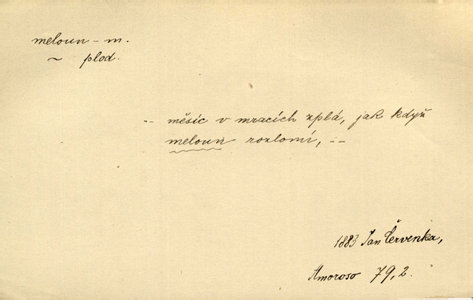 meloun – m.
~ plod.
-- měsíc v mracích zplá, jak když
meloun rozlomí, --
1883 Jan Červenka,
Amoroso 79, 2.